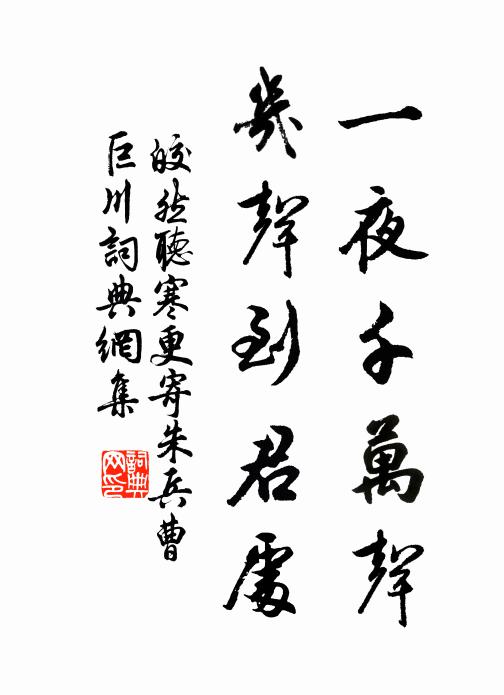 一夜千萬聲
幾聲到君處
皎然聽寒更寄朱兵曹
巨川詞典網集
詞典
网印